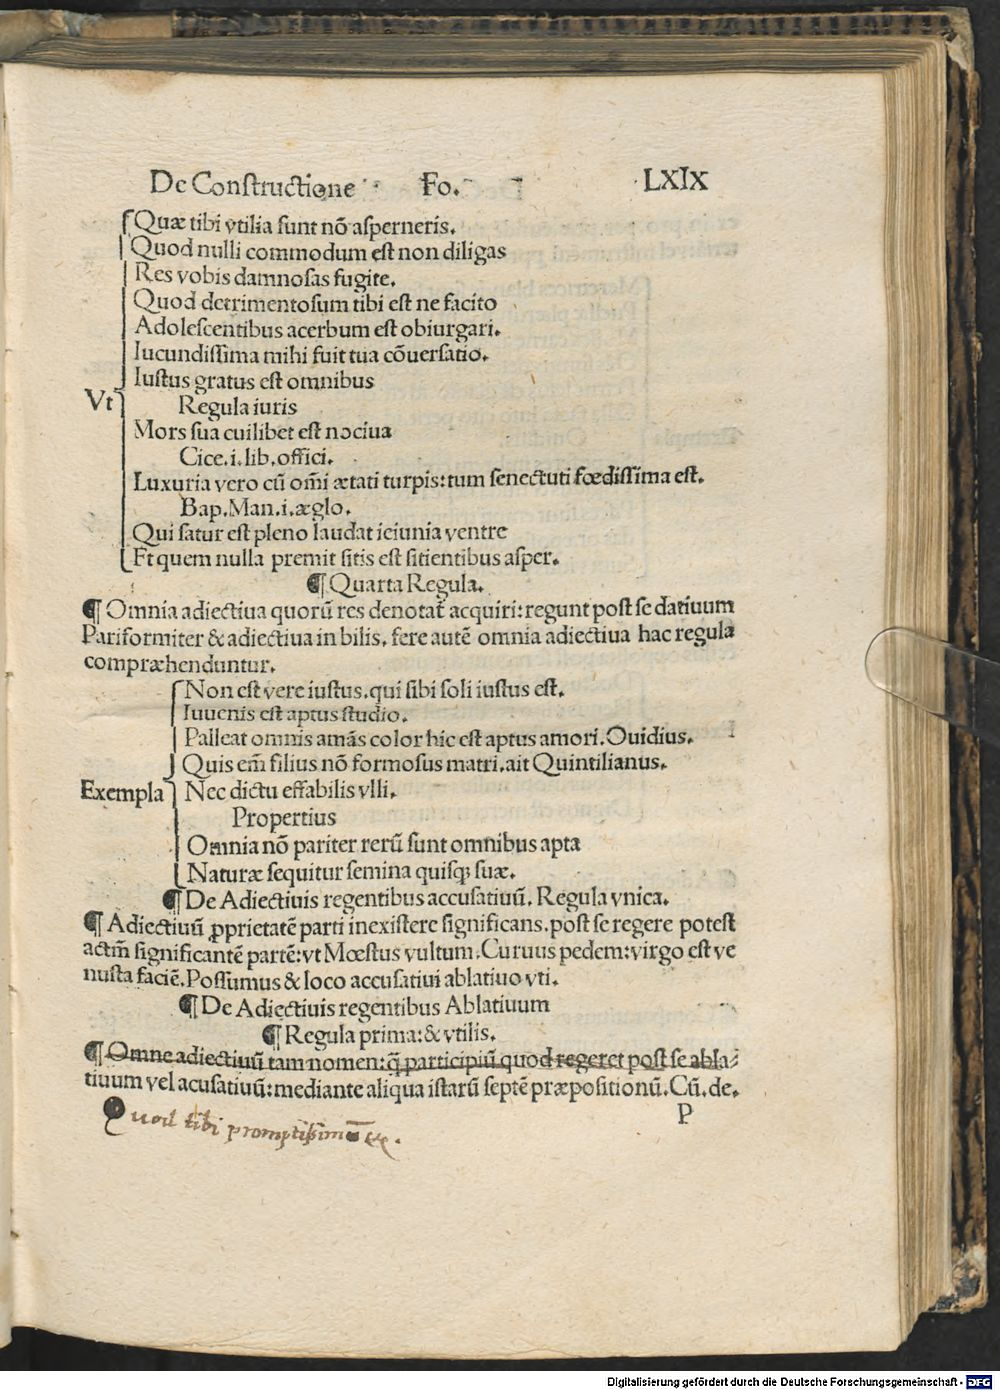 De Constructione Fo. LXIX
Quæ tibi vtilia sunt nõ asperneris.
Quod nulli commodum est non diligas
Res vobis damnosas fugite.
Quod detrimentosum tibi est ne facito
Adolescentibus acerbum est obiurgari.
Iucundissima mihi fuit tua cõuersatio.
Iustus gratus est omnibus
Vt Regula iuris
Mors sua cuilibet est nociua
Cice.i.lib.offici.
Luxuria vero cũ om̃i ætati turpis:tum senectuti fœdissima est.
Bap.Man.i.æglo.
Qui satur est pleno laudat ieiunia ventre
Et quem nulla premit sitis est sitientibus asper.
¶ Quarta Regula.
¶ Omnia adiectiua quorũ res denotat̃ acquiri:regunt post se datiuum
Pariformiter & adiectiua in bilis. fere autẽ omnia adiectiua hac regula
compræhenduntur.
Non est vere iustus.qui sibi soli iustus est.
Iuuenis est aptus studio.
Palleat omnis amãs color hic est aptus amori.Ouidius.
Quis em̃ filius nõ formosus matri.ait Quintilianus.
Exempla Nec dictu effabilis vlli.
Propertius
Omnia nõ pariter rerũ sunt omnibus apta
Naturæ sequitur semina quisqꝫ suæ.
¶ De Adiectiuis regentibus accusatiuũ. Regula vnica.
¶ Adiectiuũ ꝓprietatẽ parti inexistere significans.post se regere potest
actm̃ significantẽ partẽ:vt Mœstus vultum.Curuus pedem:virgo est ve
nusta faciẽ.Possumus & loco accusatiui ablatiuo vti.
¶ De Adiectiuis regentibus Ablatiuum
¶ Regula prima:& vtilis.
¶ Omne adiectiuũ tam nomen:q̃ participiũ quod regeret post se abla⸗
tiuum vel acusatiuũ:mediante aliqua istarũ septẽ præpositionũ.Cũ.de.
P
Quod tibi promptissimũ &c.